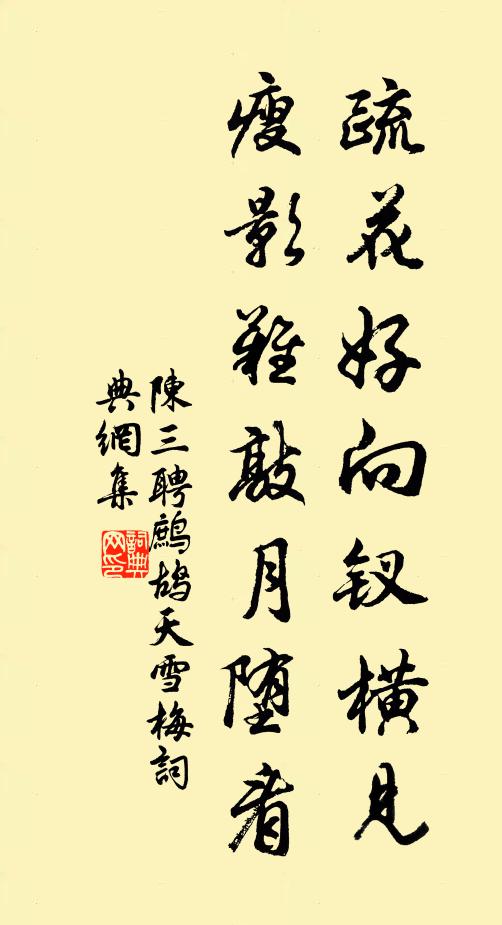 疏花好向钗橫見
瘦影難敲月堕看
陳三聘鷓鴣天雪梅詞
典網集
詞典
网印